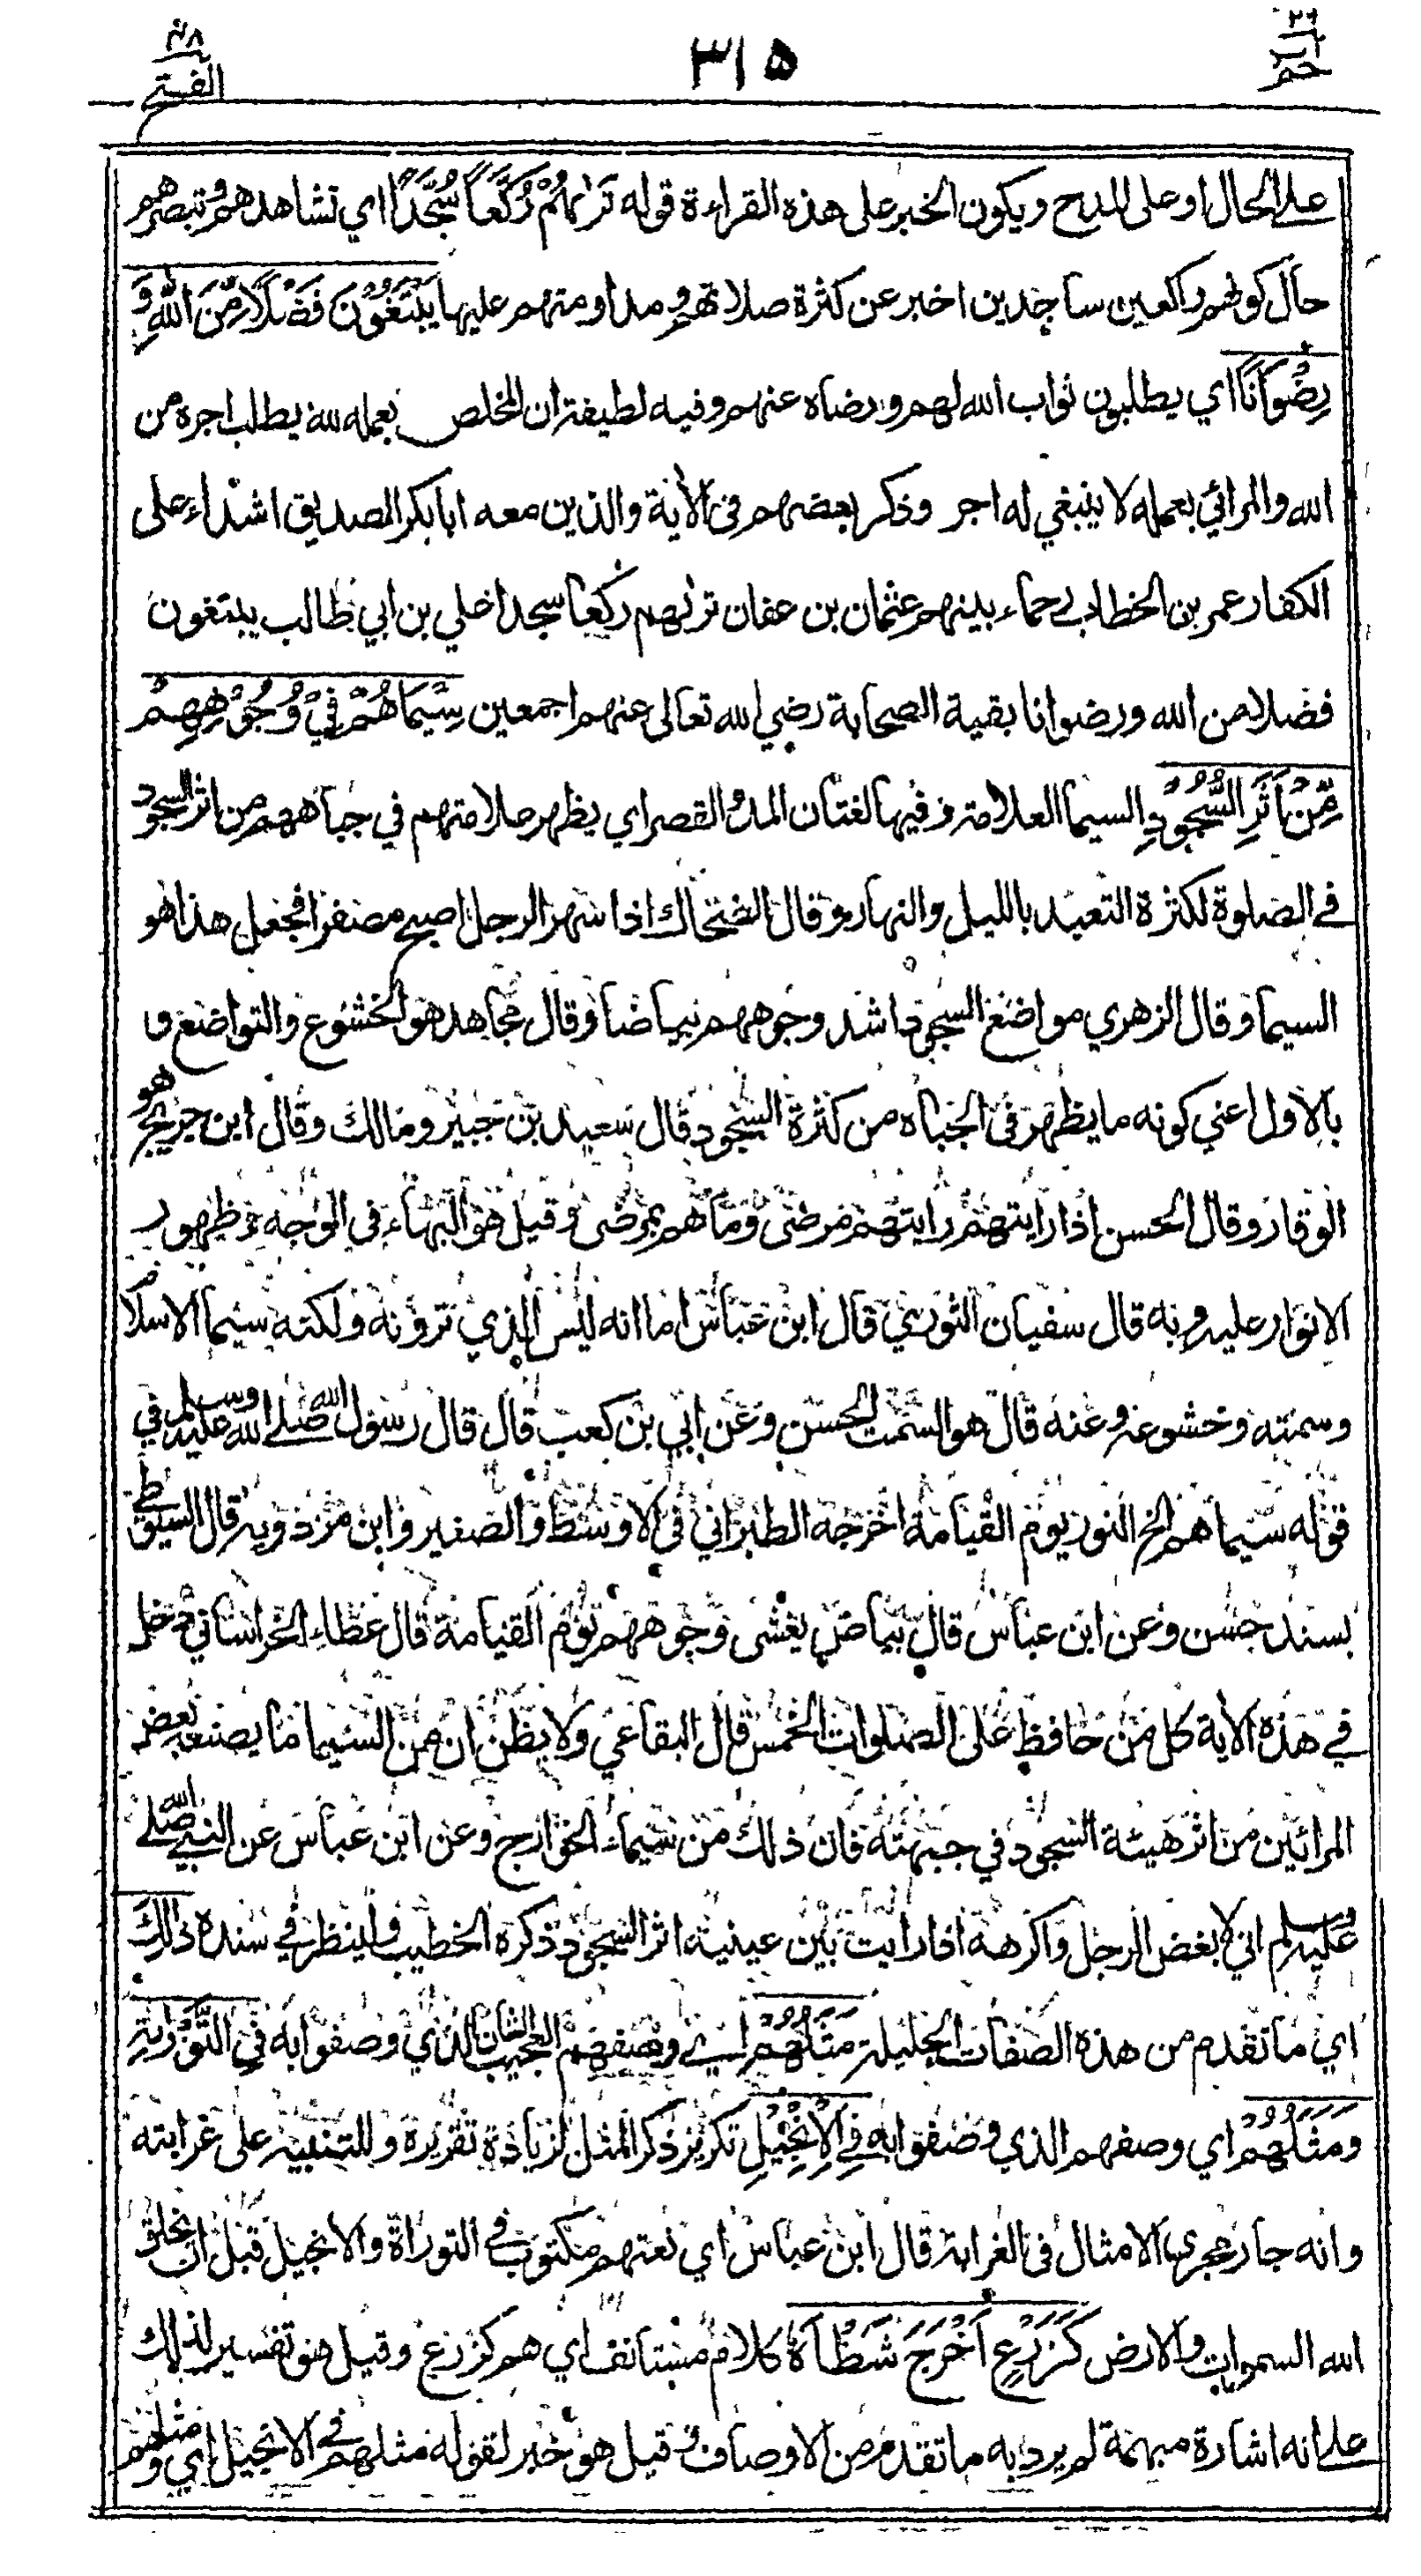 ٢٦
حم
٣١٥
٤٨
الفتح
على الحال او على المدح ويكون الخبر على هذه القراءة قوله تَرٰىهُمْ رُكَّعًا سُجَّدًا اي تشاهدهم وتبصرهم
حال كونهم راكعين ساجدين اخبر عن كثرة صلاتهم ومداومتهم عليها يَبْتَغُوْنَ فَضْلًا مِّنَ اللّٰهِ وَ
رِضْوَانًا اي يطلبون ثواب الله لهم ورضاه عنهم وفيه لطيفة ان المخلص بعمله لله يطلب اجره من
الله والمرائي بعمله لا ينبغي له اجر وذكر بعضهم في الآية والذين معه ابا بكر الصديق اشداء على
الكفار عمر بن الخطاب رحماء بينهم عثمان بن عفان ترىهم ركعا سجدا علي بن ابي طالب يبتغون
فضلا من الله ورضوانا بقية الصحابة رضي الله تعالى عنهم اجمعين سِيْمَاهُمْ فِيْ وُجُوْهِهِمْ
مِّنْ اَثَرِ السُّجُوْدِ السيما العلامة وفيها لغتان المد والقصر اي يظهر علامتهم في جباههم من اثر السجود
في الصلوة لكثرة التعبد بالليل والنهار وقال الضحاك اذا سهر الرجل اصبح مصفرا فجعل هذا هو
السيما وقال الزهري مواضع السجود اشد وجوههم بياضا وقال مجاهد هو الخشوع والتواضع و
بالاول اعني كونه ما يظهر في الجباه من كثرة السجود قال سعيد بن جبير ومالك وقال ابن جريج هو
الوقار وقال الحسن اذا رايتهم رايتهم مرضى وما هم بمرضى وقيل هو البهاء في الوجه وظهور
الانوار عليه وبه قال سفيان الثوري قال ابن عباس اما انه ليس الذي ترونه ولكنه سيما الاسلام
وسمته وخشوعه وعنه قال هو السمت الحسن وعن ابي بن كعب قال قال رسول الله صلى الله عليه وسلم في
قوله سيماهم الخ النور يوم القيامة اخرجه الطبراني في الاوسط والصغير وابن مردويه قال السيوطي
بسند حسن وعن ابن عباس قال بياض يغشى وجوههم يوم القيامة قال عطاء الخراساني دخل
في هذه الآية كل من حافظ على الصلوات الخمس قال البقاعي ولا يظن ان من السيما ما يصنعه بعض
المرائين من اثر هيئة السجود في جبهته فان ذلك من سيماء الخوارج وعن ابن عباس عن النبي صلى الله
عليه وسلم اني لابغض الرجل واكرهه اذا رايت بين عينيه اثر السجود ذكره الخطيب ولينظر في سنده ذٰلِكَ
اي ما تقدم من هذه الصفات الجليلة مَثَلُهُمْ اي وصفهم العجيب الشان الذي وصفوا به فِي التَّوْرٰىةِ
وَمَثَلُهُمْ اي وصفهم الذي وصفوا به فِي الْاِنْجِيْلِ تكرير ذكر المثل لزيادة تقريره وللتنبيه على غرابته
وانه جار مجرى الامثال في الغرابة قال ابن عباس اي نعتهم مكتوب في التوراة والانجيل قبل ان يخلق
الله السموات والارض كَزَرْعٍ اَخْرَجَ شَطْاَهٗ كلام مستانف اي هم كزرع وقيل هو تفسير لذلك
على انه اشارة مبهمة لم يرد به ما تقدم من الاوصاف وقيل هو خبر لقوله مثلهم في الانجيل اي ومثلهم